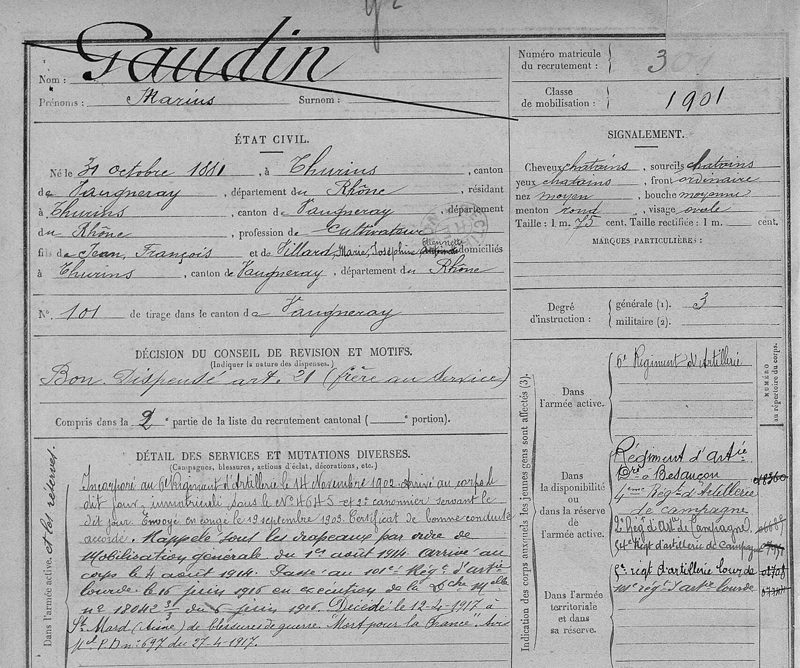 Nom : Gaudin
Prénoms : Marius Surnom :
Numéro matricule du recrutement : 3
Classe de mobilisation : 1901
ÉTAT CIVIL.
Né le 31 octobre 1881, à Thurins, canton
de Vaugneray, département du Rhône, résidant
à Thurins, canton de Vaugneray, département
du Rhône, profession de Cultivateur
fils de Jean, François et de Villard, Marie, Joséphine Etiennette domiciliés
à Thurins, canton de Vaugneray, département du Rhône
N° 101 de tirage dans le canton de Vaugneray
DÉCISION DU CONSEIL DE REVISION ET MOTIFS.
(Indiquer la nature des dispenses.)
Bon. Dispensé art. 21 (frère au service)
Compris dans la 2e partie de la liste du recrutement cantonal ( e portion).
DÉTAIL DES SERVICES ET MUTATIONS DIVERSES.
(Campagnes, blessures, actions d'éclat, décorations, etc.)
Dans l'armée active. et les réserves.
Incorporé au 6e Régiment d'Artillerie le 14 Novembre 1902. Arrivé au corps le
dit jour, immatriculé sous le No 4645 et 2e canonnier servant le
dit jour. Envoyé en congé le 19 septembre 1903. Certificat de bonne conduite
accordé. Rappelé sous les drapeaux par ordre de
Mobilisation générale du 1er août 1914. Arrivé au
corps le 4 août 1914. Passé au 101e Rég. d'artie
lourde le 16 juin 1916 en exécution de la Don Mlle
no du 6 juin 1916. Décédé le 12-4-1917 à
St Mard (Aisne) de blessures de guerre. Mort pour la France. Avis
no 697 du 27-4-1917.
SIGNALEMENT.
Cheveux chatains, sourcils chatains
yeux chatains, front ordinaire
nez moyen, bouche moyenne
menton rond, visage ovale
Taille : 1 m. 75 cent. Taille rectifiée : 1 m. cent.
MARQUES PARTICULIÈRES :
Degré d'instruction : générale (1). 3
militaire (2).
Indication des corps auxquels les jeunes gens sont affectés (3).
NUMÉRO au répertoire du corps.
Dans l'armée active.
6e Régiment d'Artillerie
Dans la disponibilité ou dans la réserve de l'armée active.
Régiment d'artie
à Besançon
4eme Régt d'Artillerie
de campagne
2e Régt d'Artie de Campagne
54e Régt d'artillerie de campagne
Dans l'armée territoriale et dans sa réserve.
5e régt d'artillerie lourde
régt d'artie lourde